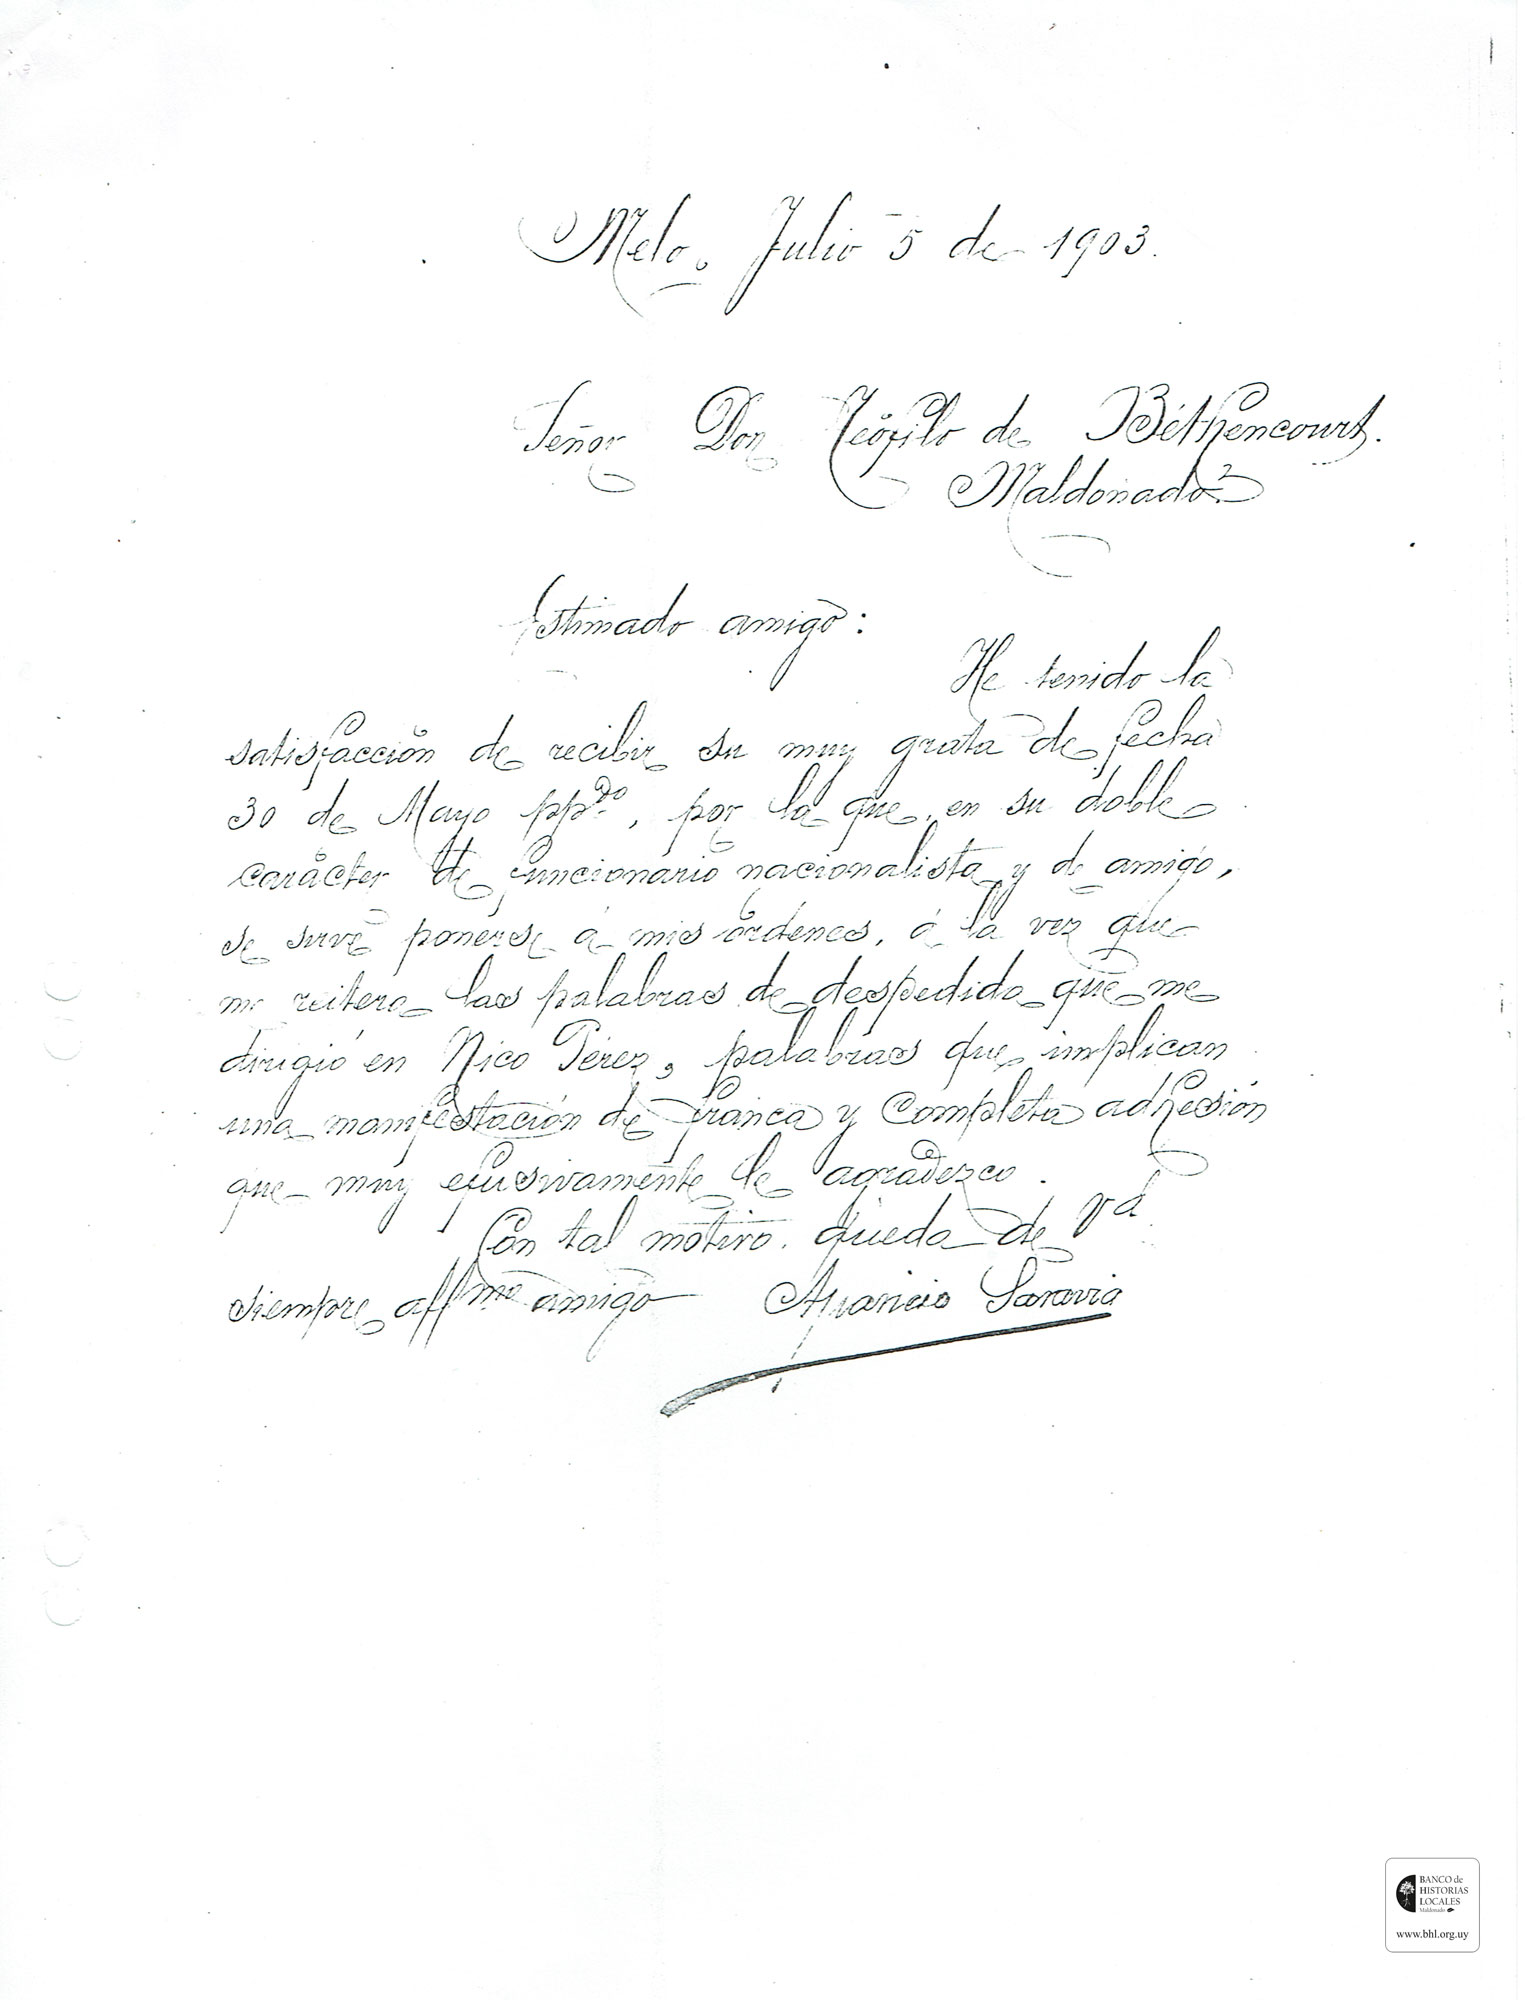 Melo, Julio 5 de 1903.
Señor Don Teófilo de Béthencourt.
Maldonado.
Estimado amigo:
He tenido la
satisfacción de recibir su muy grata de fecha
30 de Mayo ppdo, por la que, en su doble
carácter de funcionario nacionalista y de amigo,
se sirve ponerse á mis órdenes, á la vez que
me reitera las palabras de despedida que me
dirigió en Nico Pérez, palabras que implican
una manifestación de franca y completa adhesión
que muy efusivamente le agradezco.
Con tal motivo, queda de Vd
siempre affmo amigo Aparicio Saravia
BANCO de
HISTORIAS
LOCALES
Maldonado
www.bhl.org.uy